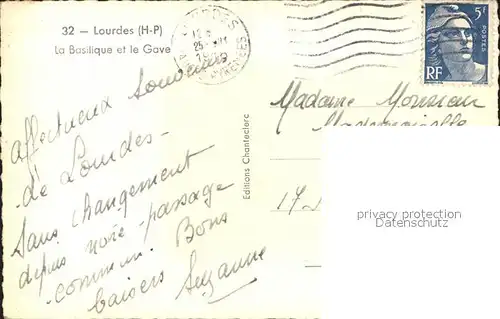 32 — Lourdes (H-P)
La Basilique et le Gave
5F
POSTES
RF
affectueux souvenir
de Lourdes -
Sans changement
depuis notre passage
commun. Bons
baisers Suzanne
Editions Chanteclerc
Madame Monsieur
Mademoiselle
17
privacy protection
Datenschutz